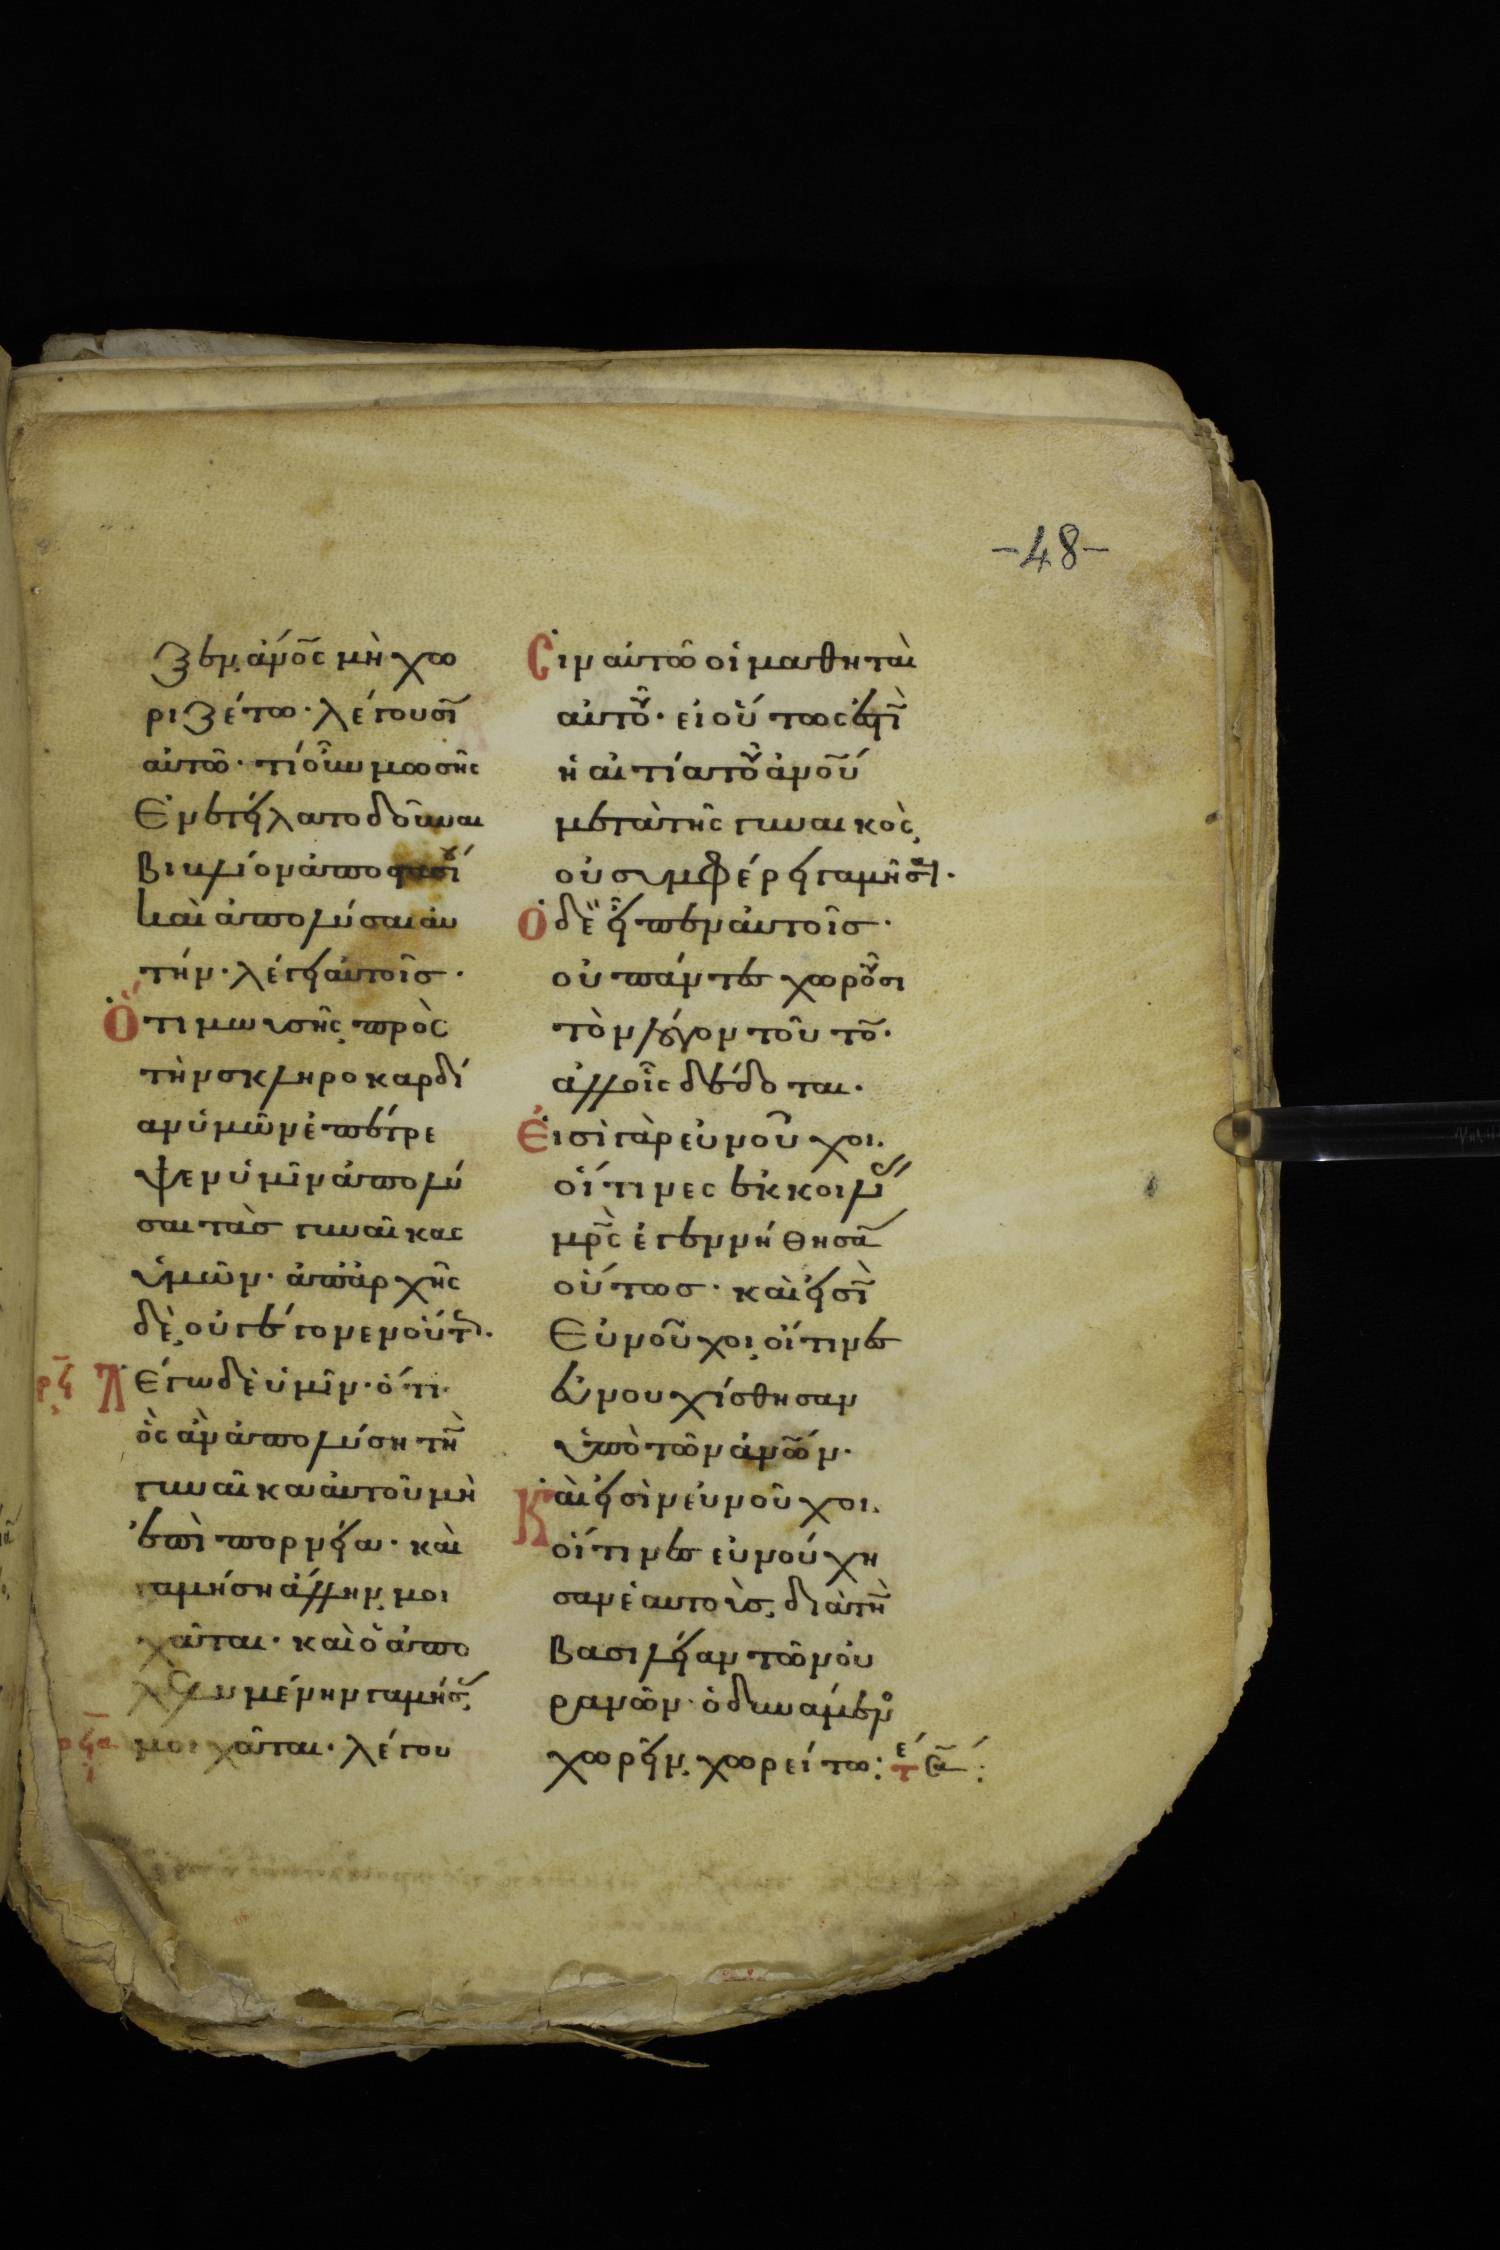 -48-
ζεν, ἄν̅ο̅ς μὴ χω
ριζέτω· λέγουσῑ
αὐτῶ· τί οὖν μωσῆς
Ἐνετείλατο δοῦναι
βιβλίον ἀποστασίου
καὶ ἀπολύσαι αὐ
τήν· λέγει αὐτοῖσ·
Ὅτι μωυσῆς, πρὸς
τὴν σκληροκαρδί
αν ὑμῶν ἐπέτρε
ψεν ὑμῖν ἀπολύ
σαι τὰσ γυναῖκας
ὑμῶν· ἀπαρχῆς
δὲ, οὐ γέγονεν οὕτω·
ρϟ Λέγω δὲ ὑμῖν· ὅτι
ὃς ἂν ἀπολύση τη̅
γυναῖκα αὐτοῦ μὴ
ἐπὶ πορνεία· καὶ
γαμήση ἄλλην, μοι
χᾶται· καὶ ὁ ἀπο
λελυμένην γαμήσ,
ρϟα μοιχᾶται· λέγου
Σιν αὐτῶ οἱ μαθηταὶ
αὐτοῦ· εἰ οὕτως ἐστὶ̅
ἡ αἰτία τοῦ ἀν̅ο̅υ
μετὰ τῆς γυναικὸς,
οὐ συμφέρει γαμῆσαι·
Ὁ δὲ εἶπεν αὐτοῖσ·
οὐ πάντες χωροῦσι
τὸν λόγον τοῦτο̅·
ἀλλ' οἷς δέδοται·
Εἰσὶ γὰρ εὐνοῦχοι,
οἵτινες ἐκ κοιλί
μρ̅ς ἐγεννήθησα̅
οὕτωσ· καὶ εἰσὶ̅
Εὐνοῦχοι, οἵτινες
εὐνουχίσθησαν
ὑπὸ τῶν ἀν̅ω̅ν·
Καὶ εἰσὶν εὐνοῦχοι,
οἵτινες εὐνούχη
σαν ἑαυτοὺσ, διὰ τὴ̅
βασιλείαν τῶν οὐ
ρανῶν· ὁ δυνάμενο
χωρεῖν, χωρείτω: